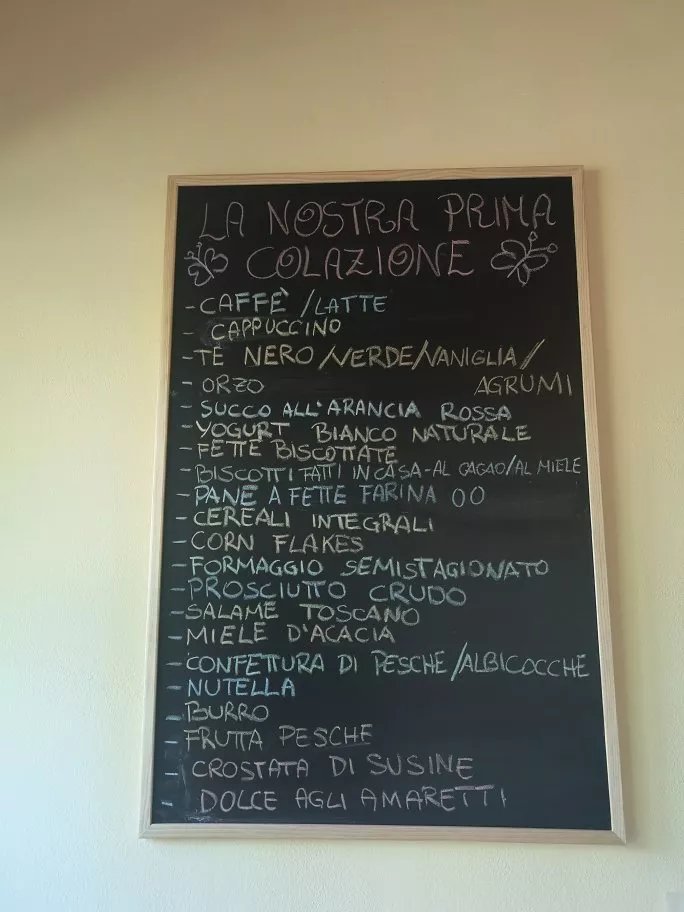 LA NOSTRA PRIMA
COLAZIONE
-CAFFÈ /LATTE
- CAPPUCCINO
-TÈ NERO/VERDE/VANIGLIA/
- ORZO AGRUMI
- SUCCO ALL'ARANCIA ROSSA
-YOGURT BIANCO NATURALE
-FETTE BISCOTTATE
-BISCOTTI FATTI IN CASA-AL CACAO/AL MIELE
-PANE A FETTE FARINA 00
-CEREALI INTEGRALI
-CORN FLAKES
-FORMAGGIO SEMISTAGIONATO
-PROSCIUTTO CRUDO
-SALAME TOSCANO
-MIELE D'ACACIA
-CONFETTURA DI PESCHE/ALBICOCCHE
-NUTELLA
-BURRO
-FRUTTA PESCHE
- CROSTATA DI SUSINE
- DOLCE AGLI AMARETTI